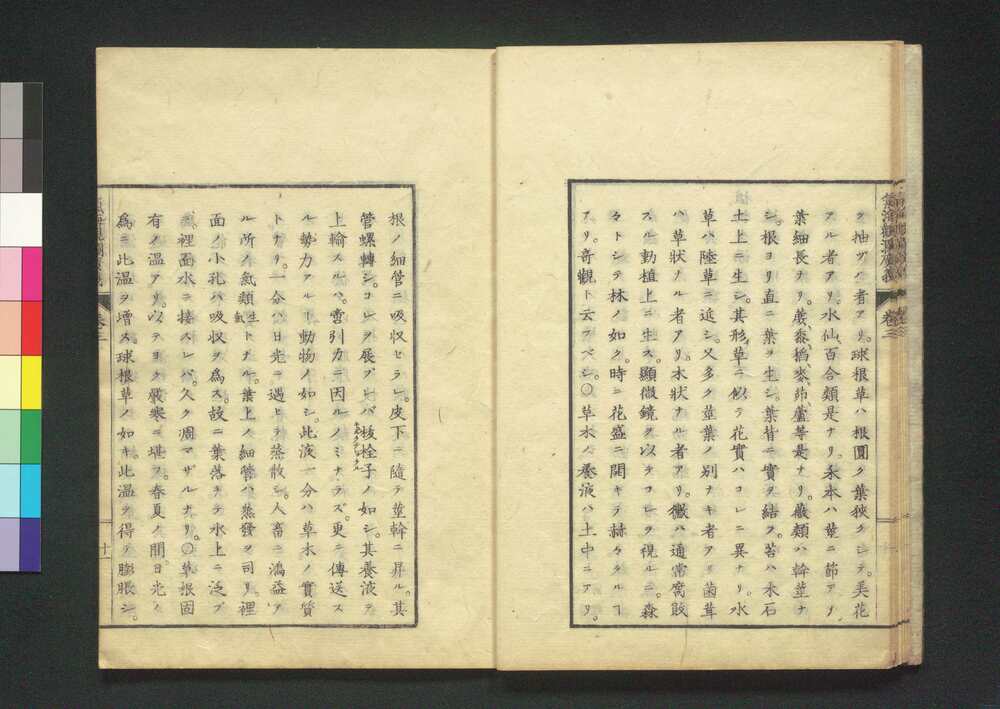 ヲ抽ヅル者アリ。球根草ハ根圓ク葉狹クシテ。美花
アル者アリ水仙、百合類是ナリ。禾本ハ莖ニ節アリ。
葉細長ナリ。黍、稻、麥、蘆等是ナリ。蕨類ハ幹莖ナ
シ。根ヨリ直ニ葉ヲ生シ。葉背ニ實ヲ結フ。苔ハ木石
土上ニ生シ。其形草ニ似テ花實ハコレニ異ナリ。水
草ハ陸草ニ近シ。又多ク莖葉ノ別ナキ者アリ菌茸
ハ草狀ナル者アリ。木狀ナル者アリ。黴ハ通常腐敗
スル動植上ニ生ス。顯微鏡ヲ以テコレヲ視ルニ。森
々トシテ林ノ如ク。時ニ花盛ニ開キテ赫々タルヿ
アリ。奇觀ト云フベシ。〇草木ノ養液ハ土中ニアリ。
卷三
根ノ細管ニ吸収セラレ。皮下ニ隨テ莖幹ニ昇ル。其
管螺轉シ。コレヲ展ブレバ拔栓子ノ如シ。其養液ヲ
上輸スルハ。啻引力ニ因ルノミナラズ。更ニ傳送ス
ル勢力アルヿ動物ノ如シ。此液一分ハ草木ノ實質
トナリ。一分ハ日光ニ遇ヒテ蒸散シ。人畜ニ鴻益ア
ル所ノ氣類生氣トナル。葉上ノ細管ハ蒸發ヲ司リ。裡
面ノ小孔ハ吸収ヲ爲ス。故ニ葉落テ水上ニ泛ブ
裡面水ニ接スレバ。久ク凋マザルナリ。〇草根固
有ノ温アリ。以テヨク嚴寒ニ堪フ。春夏ノ間。日光ノ
爲ニ此温ヲ增ス。球根草ノ如キ此温ヲ得テ膨脹シ。
卷三
十一